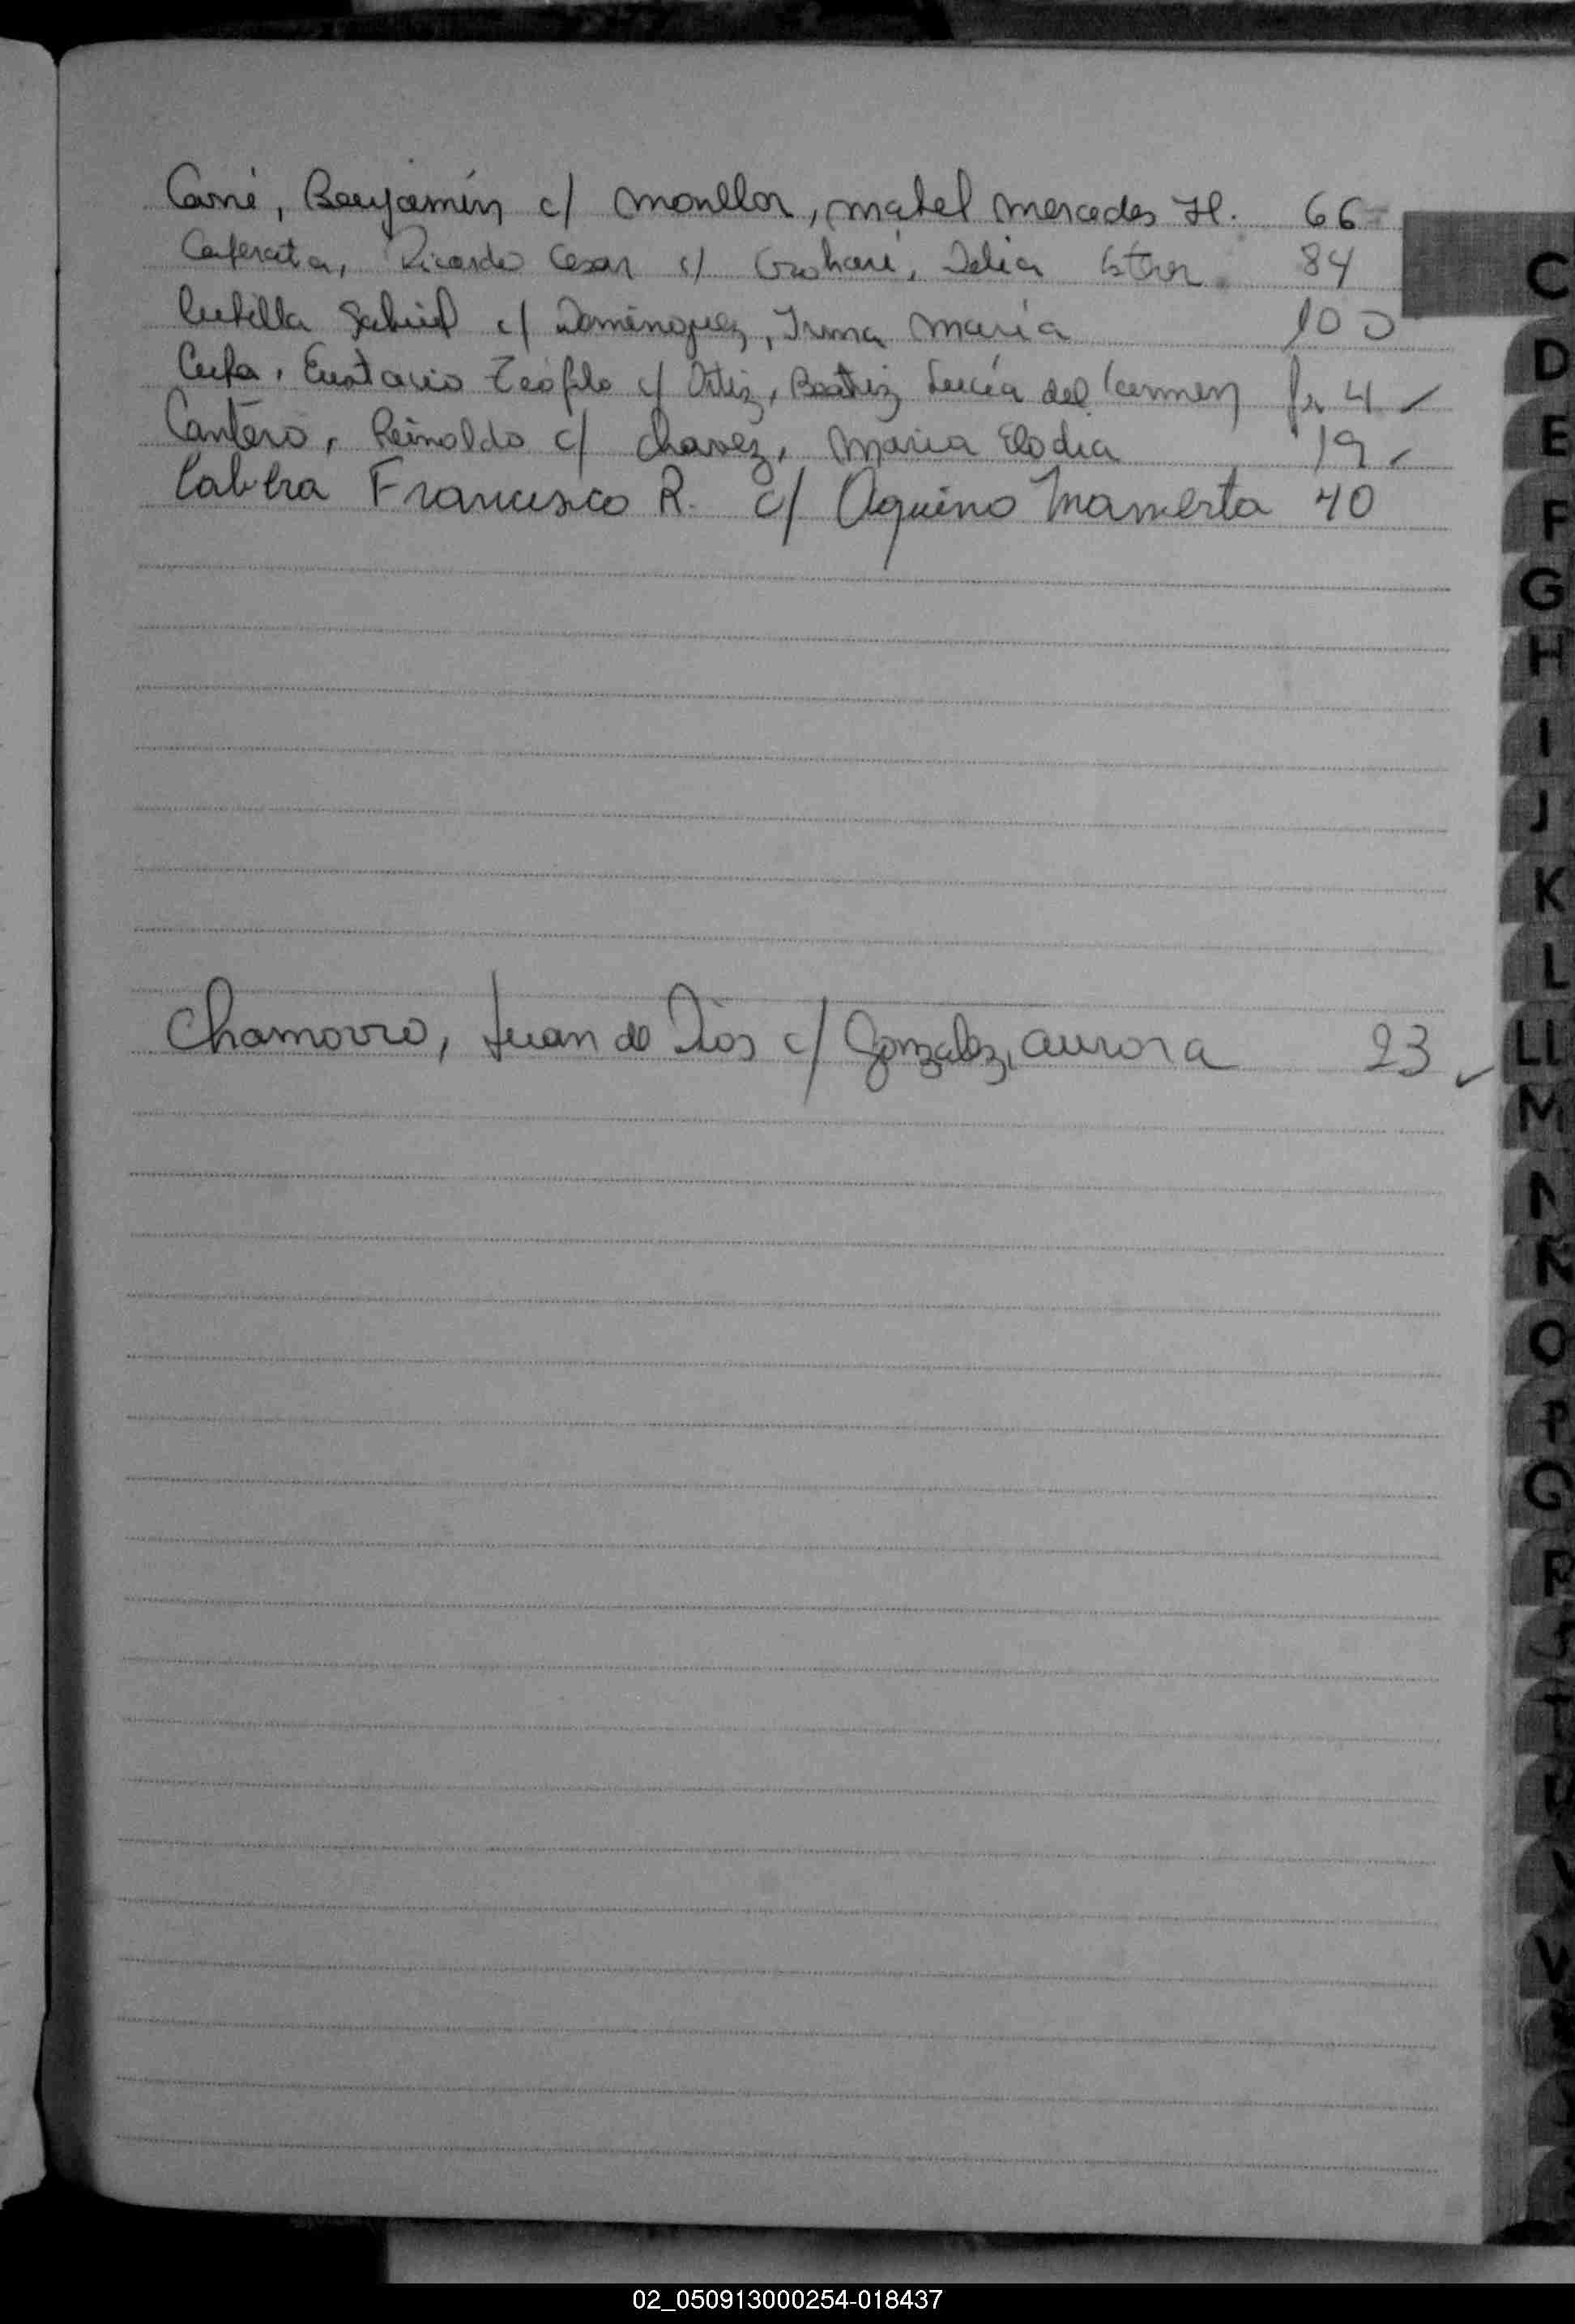 Carné, Benjamín c/ Monllor, Mabel Mercedes H. 66
Caferata, Ricardo Cesar c/ Delia Ester 84
Gabriel c/ Dominguez, Irma María 100
Eustacio Teófilo c/ Ortiz, Beatriz Lucía del Carmen 4
Cantero, Reinaldo c/ Chavez, Maria Elodia 19
Cabrera Francisco R. c/ Aquino Mamerta 40
Chamorro, Juan de Dios c/ Gonzalez, Aurora 23
C
D
E
F
G
H
I
J
K
L
LL
M
N
Ñ
O
P
Q
R
T
U
V
02_050913000254-018437